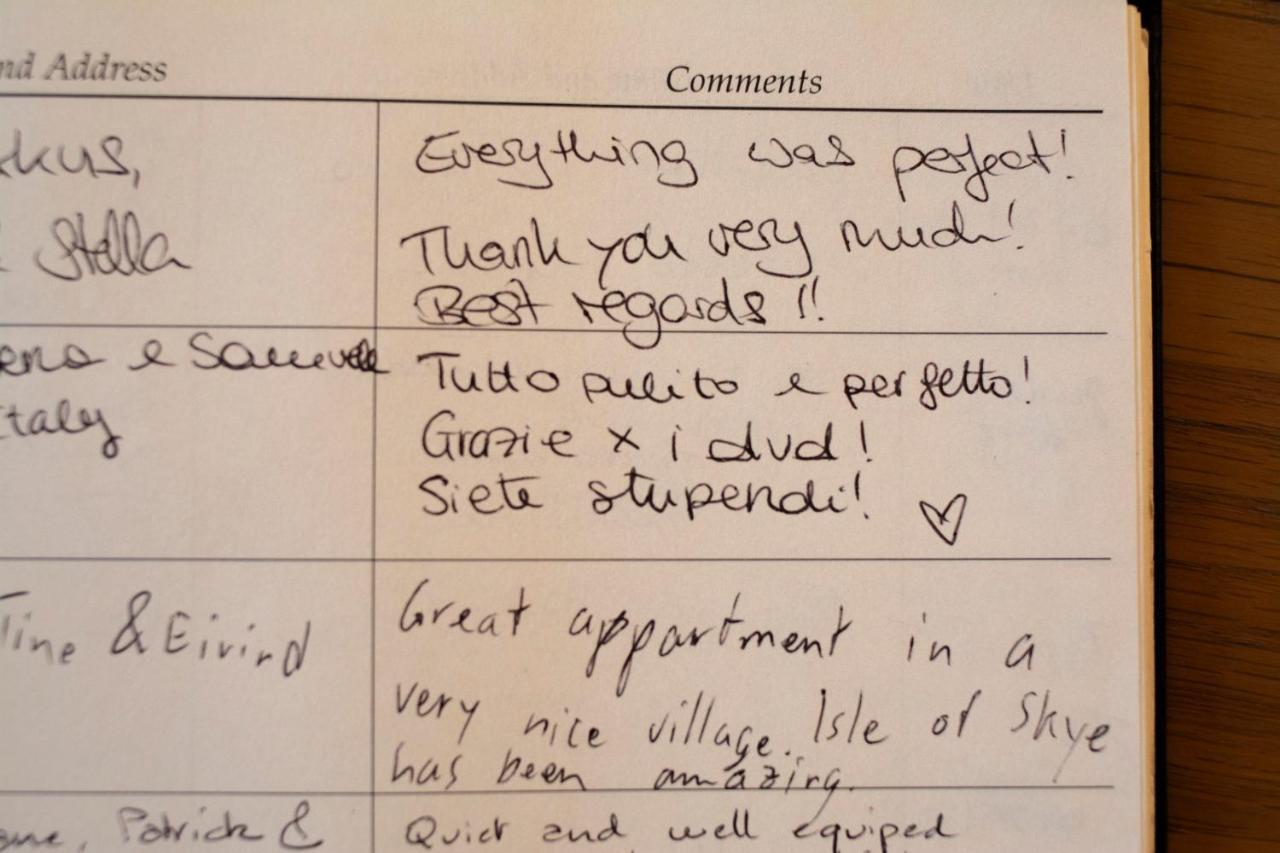 nd Address
Comments
kus,
Everything was perfect!
& Stella
Thank you very much!
Best regards !!
ena e Samuele
Tutto pulito e perfetto!
Italy
Grazie x i
Siete stupendi!
Tine & Eivind
Great appartment in a
very nice village. Isle of Skye
has been amazing.
Patrick &
Quiet and well equiped